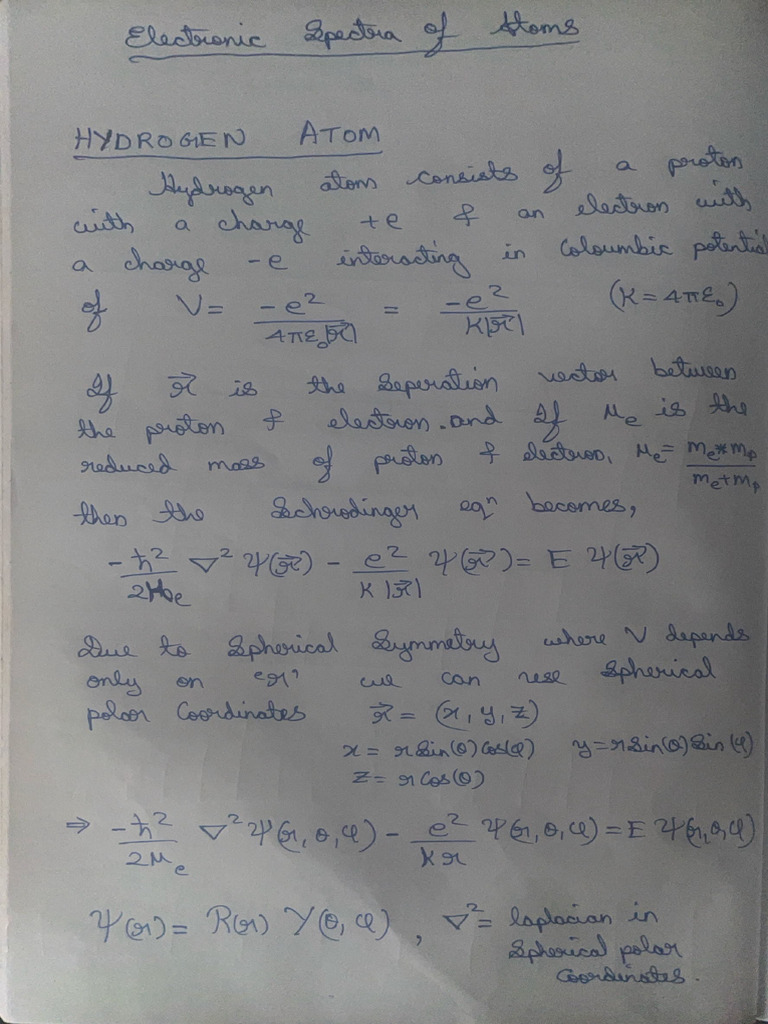 Electronic Spectra of Atoms
HYDROGEN ATOM
Hydrogen atom consists of a proton
with a charge +e & an electron with
a charge -e interacting in Coloumbic potential
of V = -e²/4πε₀|r⃗| = -e²/K|r⃗| (K = 4πε₀)
If r⃗ is the Seperation vector between
the proton & electron. and If μₑ is the
reduced mass of proton & electron, μₑ = mₑ*mₚ/mₑ+mₚ
then the Schrodinger eqⁿ becomes,
-ħ²/2μₑ ∇² Ψ(r⃗) - e²/K|r⃗| Ψ(r⃗) = E Ψ(r⃗)
Due to Spherical Symmetry where V depends
only on "r" we can use Spherical
polar Coordinates r⃗ = (x, y, z)
x = r Sin(θ) Cos(φ) y = r Sin(θ) Sin(φ)
z = r Cos(θ)
⇒ -ħ²/2μₑ ∇² Ψ(r, θ, φ) - e²/Kr Ψ(r, θ, φ) = E Ψ(r, θ, φ)
Ψ(r) = R(r) Y(θ, φ), ∇² = laplacian in
Spherical polar
Coordinates.